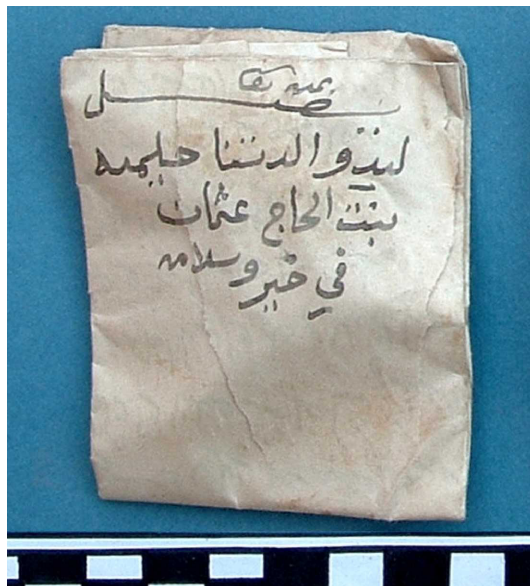 بمنه تعا
تصل
ليد والدتنا حليمه
بنت الحاج عثمان
في خير وسلامه